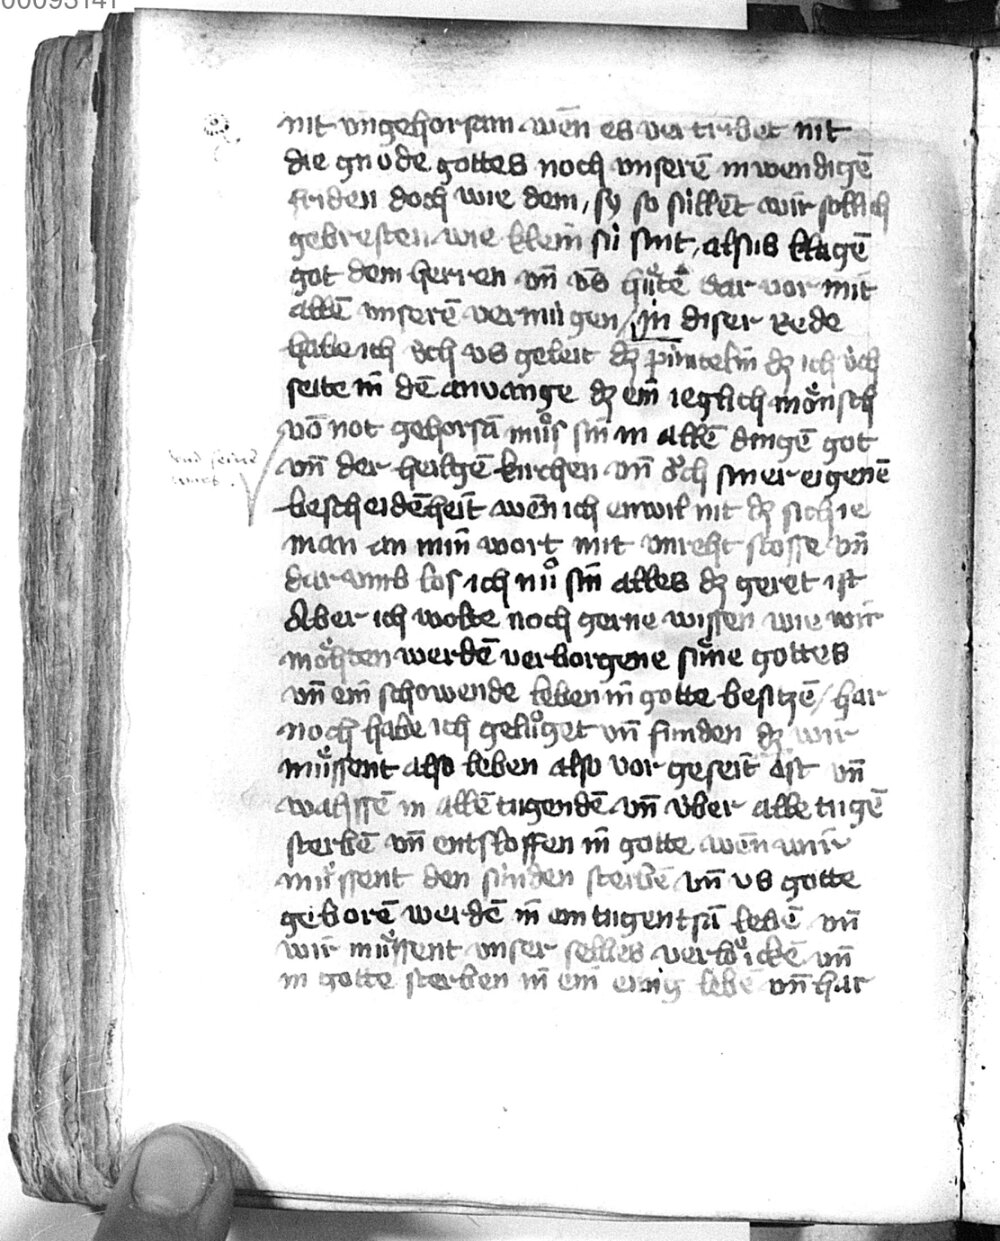 00093141
nit vngehorsam wēn es ver tribet nit
die gnode gottes noch vnserē inwendigē
friden doch wie dem / sy so süllēt wir sollich
gebresten wie klein sü sint, alsus klagē
got dem herren vn̄ vs hu̍tē dar vor mit
allē vnserē vermügen / jn diser rede
habe ich och vs geleit dz pūntelin dz ich v́ch
seite in dē anvange dz ein ieglich mönsch
vō not gehorsā mu̍s sin in allē dingē got
vn̄ der heilgē kirchen vn̄ o̍ch siner eigenē
bescheidēheit wēn ich enwil nit dz sich ie
man an min wort mit vnreht stosse vn̄
dar vmb los ich nu̍ sin alles dz geret ist
Aber ich wolte noch gerne wissen wie wir
möhten werdē verborgene süne gottes
vn̄ ein schowende leben in gotte besitzē / har
noch habe ich gelu̍get vn̄ funden dz wir
müssent also leben also vor geseit ist vn̄
wahssē in allē tugendē vn̄ über alle tugē
sterbē vn̄ entsloffen in gotte wēn wir
müssent den sünden sterbē vn̄ vs gotte
geborē werdē in ein tugentsā lebē vn̄
wir müssent vnser selbes verlo̍ickē vn̄
in gotte sterben in ein ewig lebē vn̄ har